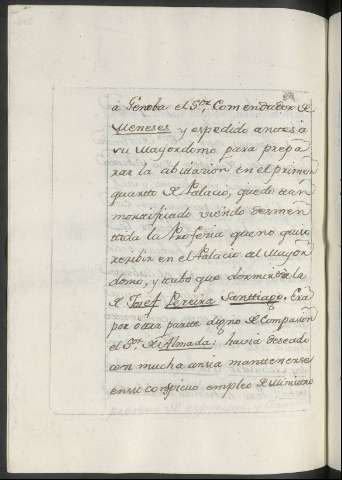 a Genoba el S.or Comendador de
Meneses y espedido antes a
su Mayordomo para prepa
rar la abitacion en el primer
quarto de Palacio, quedo tan
mortificado viendo desmen
tida la Profecia que no quiso
recibir en el Palacio al Mayor
domo, y tubo que dormir en la
de Josef Pereira Santtiago. Era
por otra parte digno de Compasion
el S.or de Almada; havia deseado
con mucha ansia mantenerse
en su conspicuo empleo de Ministro